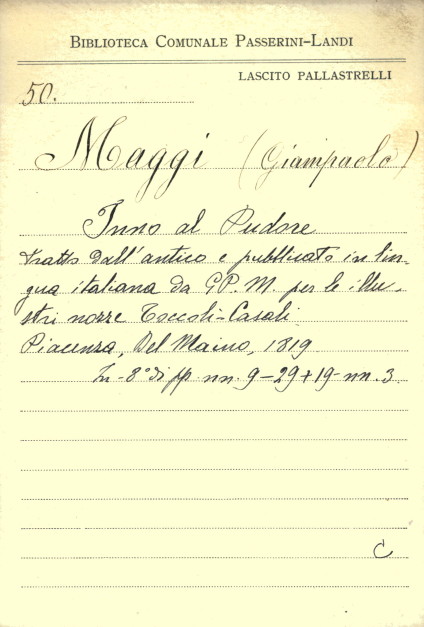 BIBLIOTECA COMUNALE PASSERINI-LANDI
LASCITO PALLASTRELLI
50.
Maggi (Giampaolo)
Inno al Pudore
tratto dall'antico e pubblicato in lin-
gua italiana da G.P.M. per le illu-
stri nozze Toccoli-Casali
Piacenza, Del Maino, 1819
In-8° di pp. nn. 9-29+19-nn. 3.
C